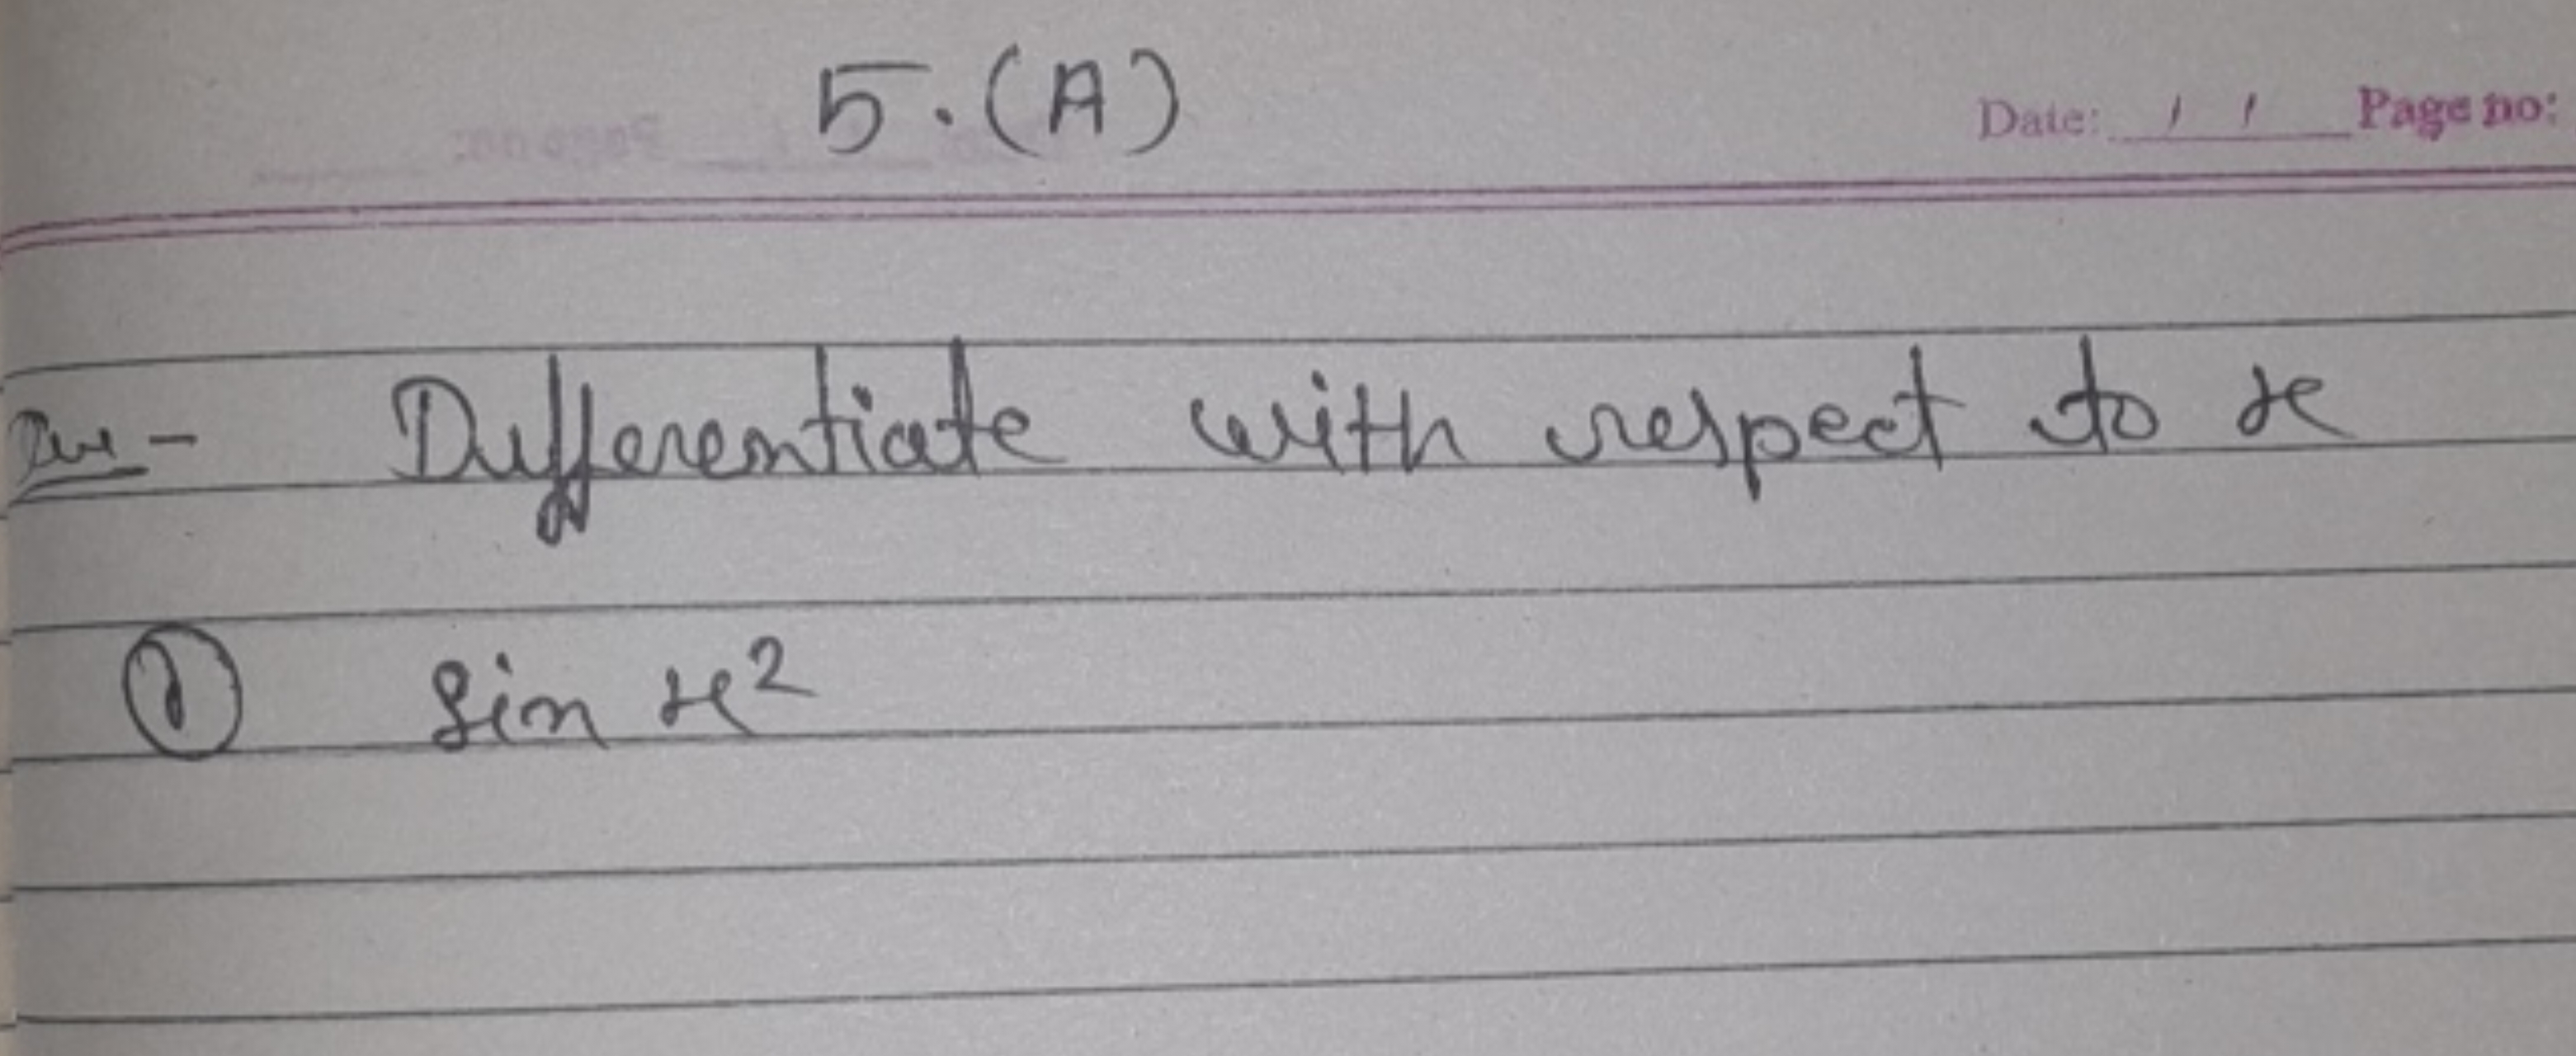 5.(A)
Date: / / Page no:
Que - Differentiate with respect to x
① Sin x²